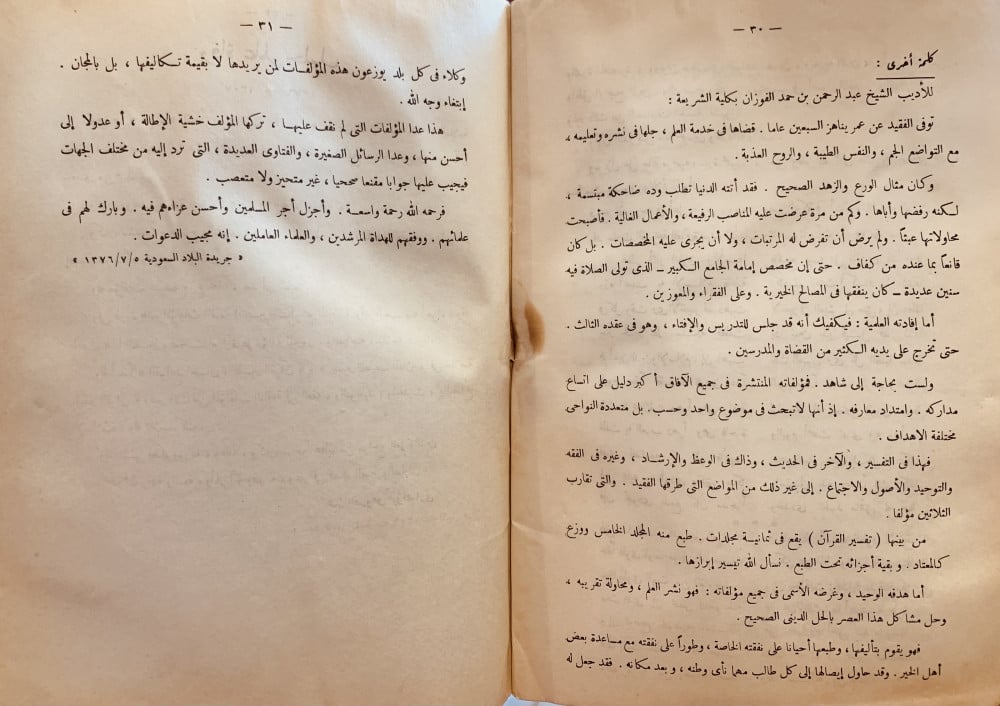 — ٣٠ —
كلمة أخرى :
للأديب الشيخ عبد الرحمن بن حمد الفوزان بكلية الشريعة :
توفى الفقيد عن عمر يناهز السبعين عاما . قضاها فى خدمة العلم ، جلها فى نشره وتعليمه ،
مع التواضع الجم ، والنفس الطيبة ، والروح العذبة .
وكان مثال الورع والزهد الصحيح . فقد أتته الدنيا تطلب وده ضاحكة مبتسمة ،
لكنه رفضها وأباها . وكم من مرة عرضت عليه المناصب الرفيعة ، والأعمال الغالية . فأصبحت
محاولاتها عبثاً . ولم يرض أن تفرض له المرتبات ، ولا أن يجرى عليه المخصصات . بل كان
قانعاً بما عنده من كفاف . حتى إن مخصص إمامة الجامع الكبير — الذى تولى الصلاة فيه
سنين عديدة — كان ينفقها فى المصالح الخيرية . وعلى الفقراء والمعوزين .
أما إفادته العلمية : فيكفيك أنه قد جلس للتدريس والإفتاء ، وهو فى عقده الثالث .
حتى تخرج على يديه الكثير من القضاة والمدرسين .
ولست بحاجة إلى شاهد . فمؤلفاته المنتشرة فى جميع الآفاق أكبر دليل على اتساع
مداركه . وامتداد معارفه . إذ أنها لاتبحث فى موضوع واحد وحسب. بل متعددة النواحى
مختلفة الاهداف .
فهذا فى التفسير ، والآخر فى الحديث ، وذاك فى الوعظ والإرشاد ، وغيره فى الفقه
والتوحيد والأصول والاجتماع . إلى غير ذلك من المواضع التى طرقها الفقيد . والتى تقارب
الثلاثين مؤلفا .
من بينها ( تفسير القرآن ) يقع فى ثمانية مجلدات . طبع منه المجلد الخامس ووزع
كالمعتاد . وبقية أجزائه تحت الطبع . نسأل الله تيسير إبرازها .
أما هدفه الوحيد ، وغرضه الأسمى فى جميع مؤلفاته : فهو نشر العلم ، ومحاولة تقريبه ،
وحل مشاكل هذا العصر بالحل الدينى الصحيح .
فهو يقوم بتأليفها ، وطبعها أحيانا على نفقته الخاصة ، وطوراً على نفقته مع مساعدة بعض
أهل الخير . وقد حاول إيصالها إلى كل طالب مهما نأى وطنه ، وبعد مكانه . فقد جعل له
— ٣١ —
وكلاء فى كل بلد يوزعون هذه المؤلفات لمن يريدها لا بقيمة تكاليفها ، بل بالمجان .
إبتغاء وجه الله .
هذا عدا المؤلفات التى لم نقف عليها ، تركها المؤلف خشية الإطالة ، أو عدولا إلى
أحسن منها ، وعدا الرسائل الصغيرة ، والفتاوى العديدة ، التى ترد إليه من مختلف الجهات
فيجيب عليها جوابا مقنعا صحيا ، غير متحيز ولا متعصب .
فرحمه الله رحمة واسعة . وأجزل أجر المسلمين وأحسن عزاءهم فيه . وبارك لهم فى
علمائهم . ووفقهم للهداة المرشدين ، والعلماء العاملين . إنه مجيب الدعوات .
« جريدة البلاد السعودية ١٣٧٦/٧/٥ »